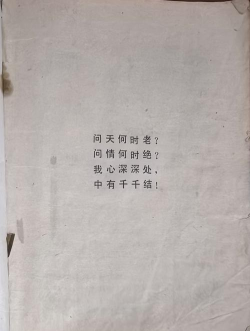 问天何时老？
问情何时绝？
我心深深处，
中有千千结！